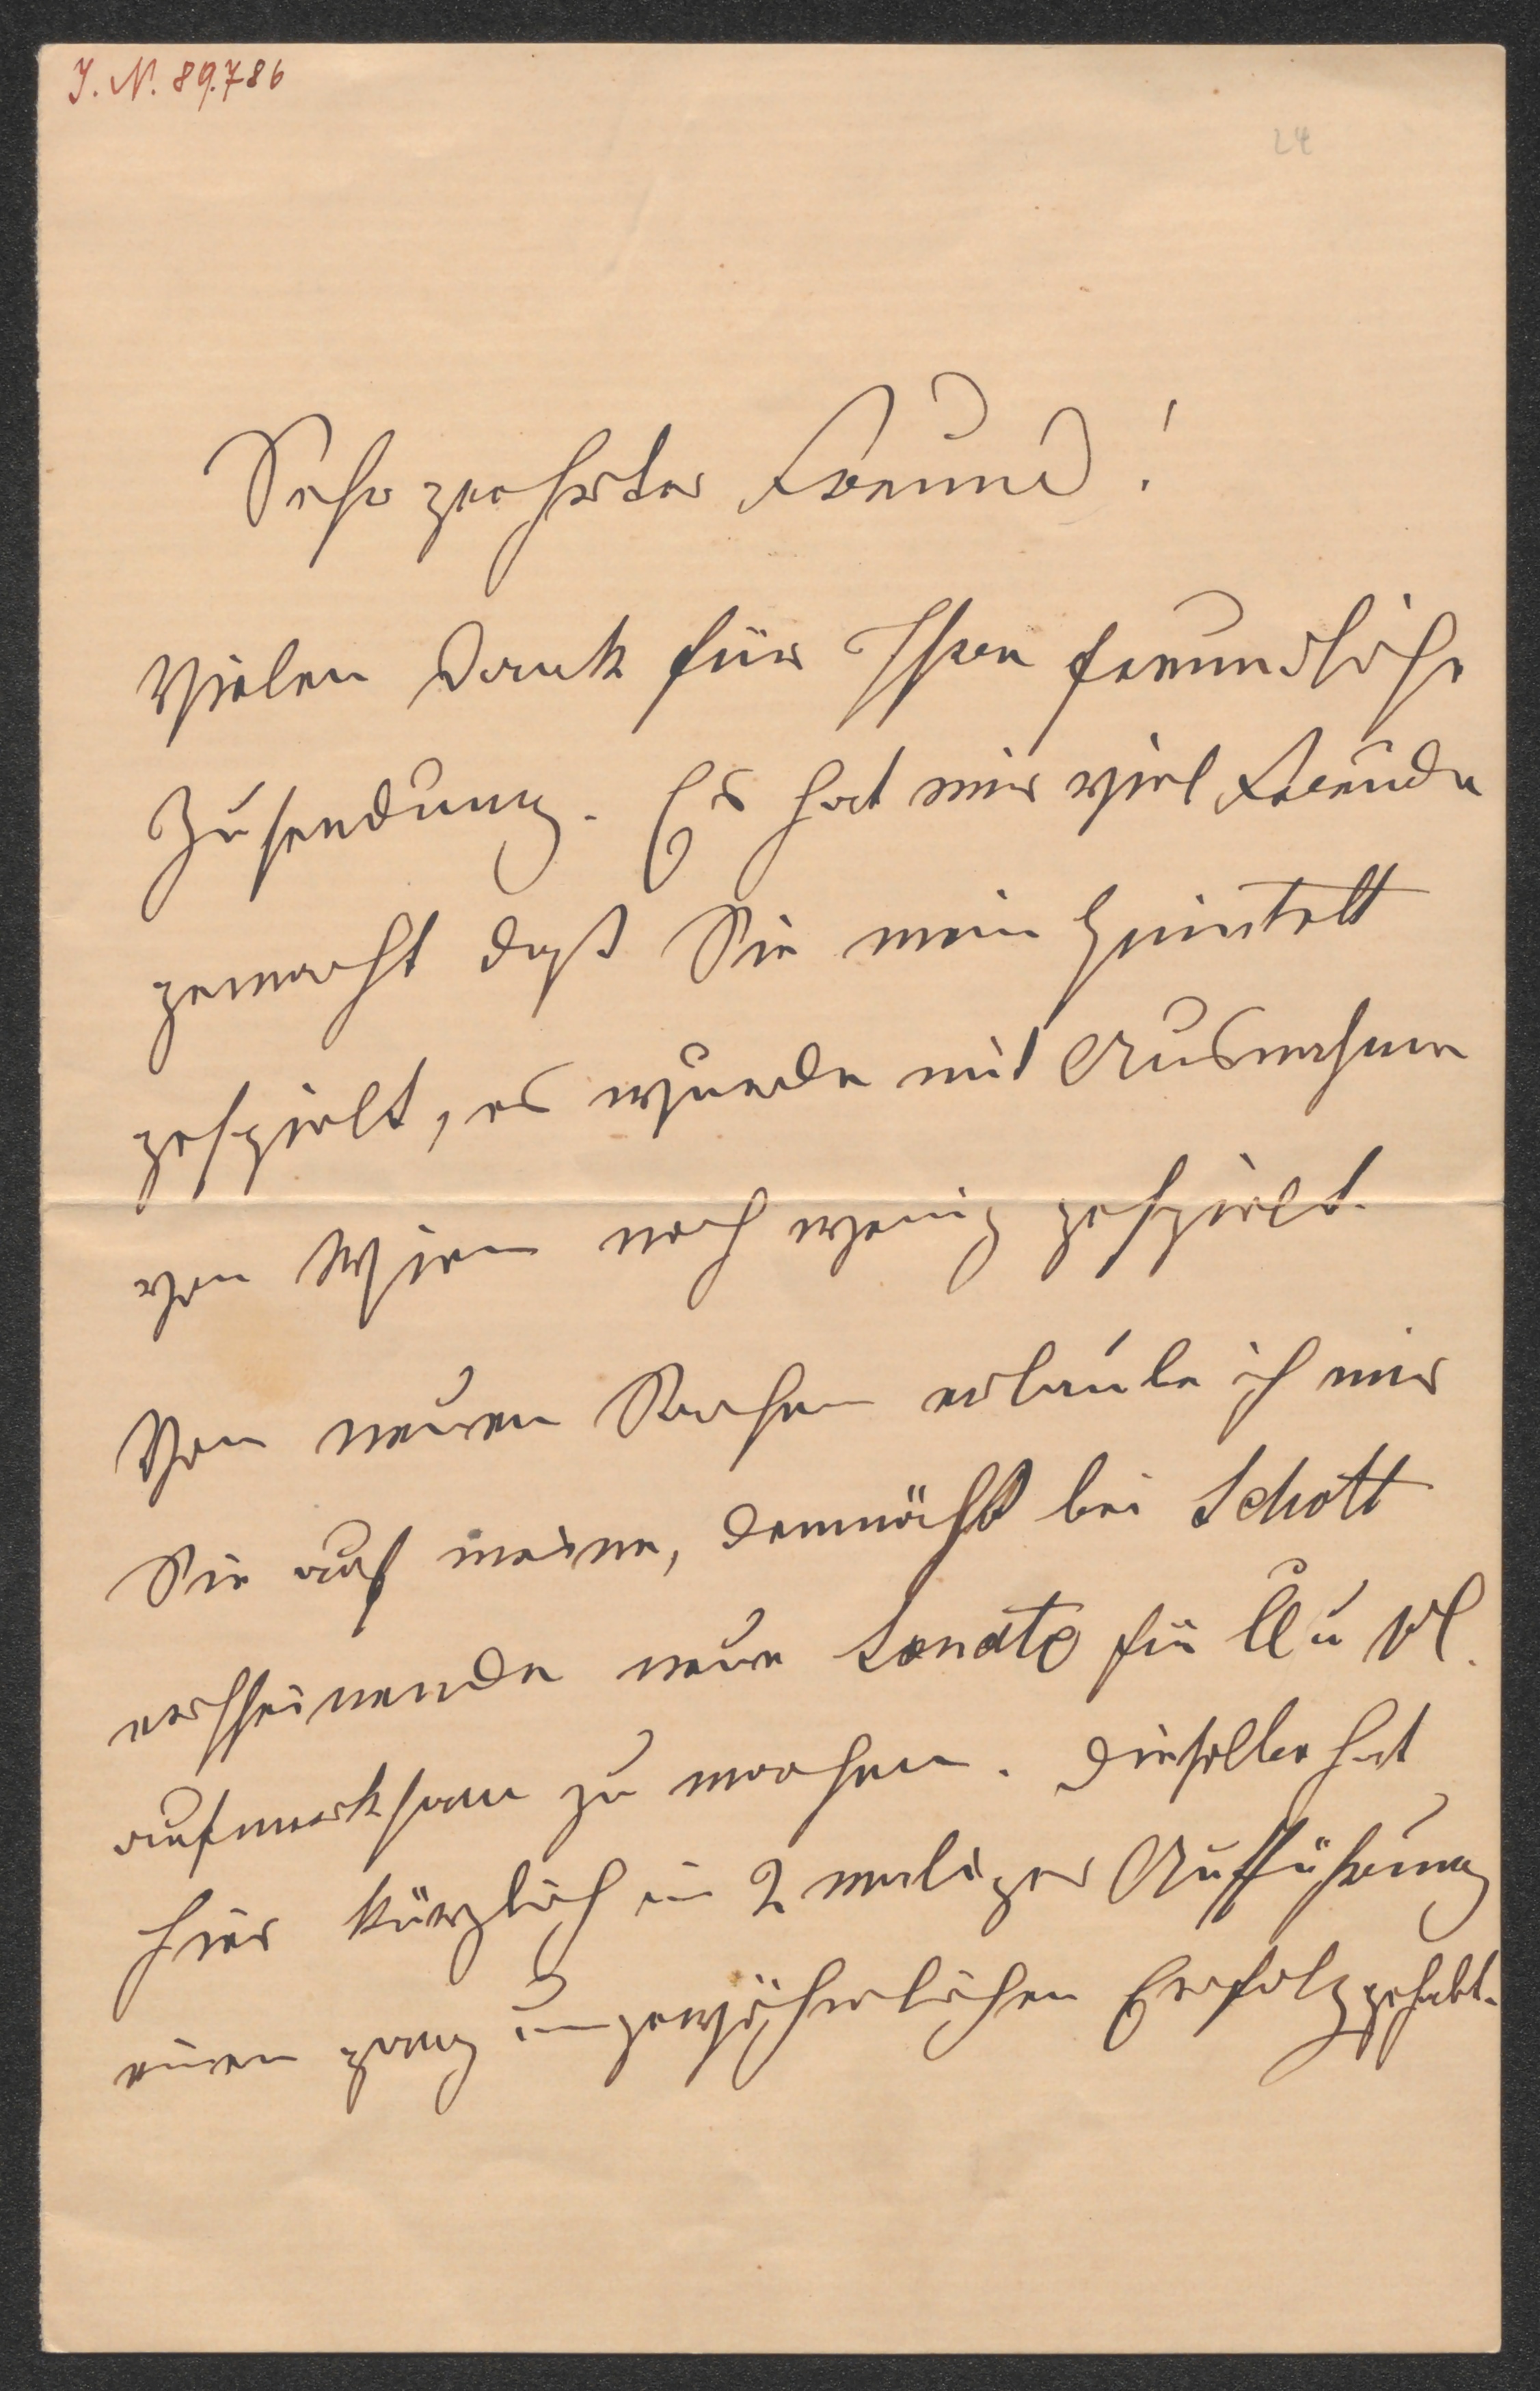 J. N. 89.786
24
Sehr geehrter Freund!
Vielen Dank für Ihre freundliche
Zusendung. Es hat mir viel Freude
gemacht daß Sie mein Quintett
gespielt, es wurde mit Ausnahme
von Wien noch wenig gespielt.
Von neuen Sachen erlaube ich mir
Sie auf meine, demnächst bei Schott
erscheinende neue Sonate für Cl u Vl.
aufmerksam zu machen. Dieselbe hat
hier kürzlich in 2 maliger Aufführung
einen ganz ungewöhnlichen Erfolg gehabt.